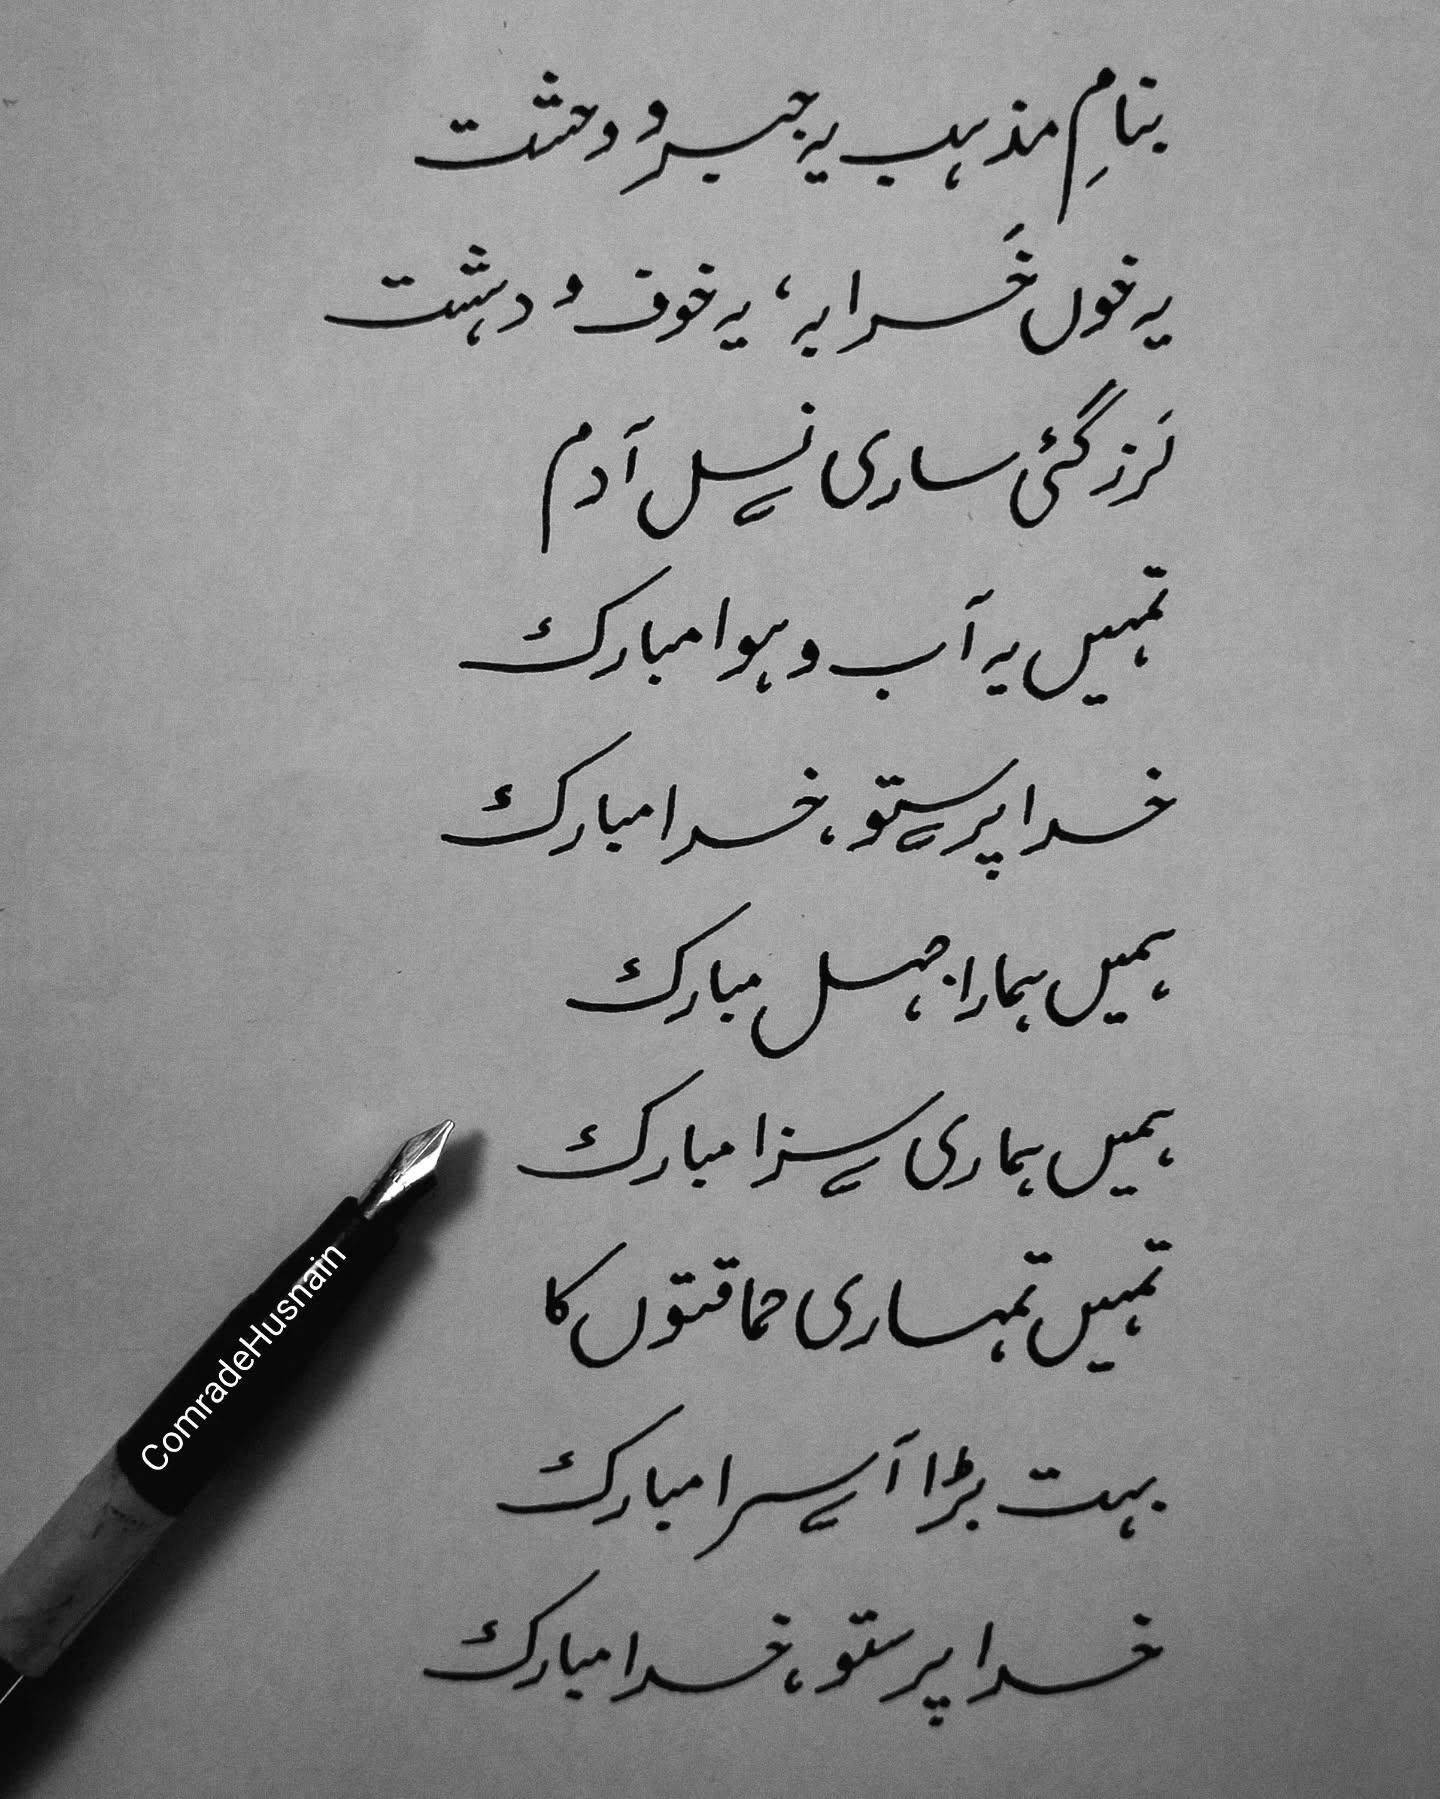 بنامِ مذہب یہ جبر و وحشت
یہ خوں خَرابہ، یہ خوف و دہشت
لَرز گئی ساری نسل آدم
تمہیں یہ آب و ہوا مبارک
خدا پرستو، خدا مبارک
ہمیں ہمارا جہل مبارک
ہمیں ہماری سزا مبارک
تمہیں تمہاری حماقتوں کا
بہت بڑا آسرا مبارک
خدا پرستو، خدا مبارک
ComradeHusnain